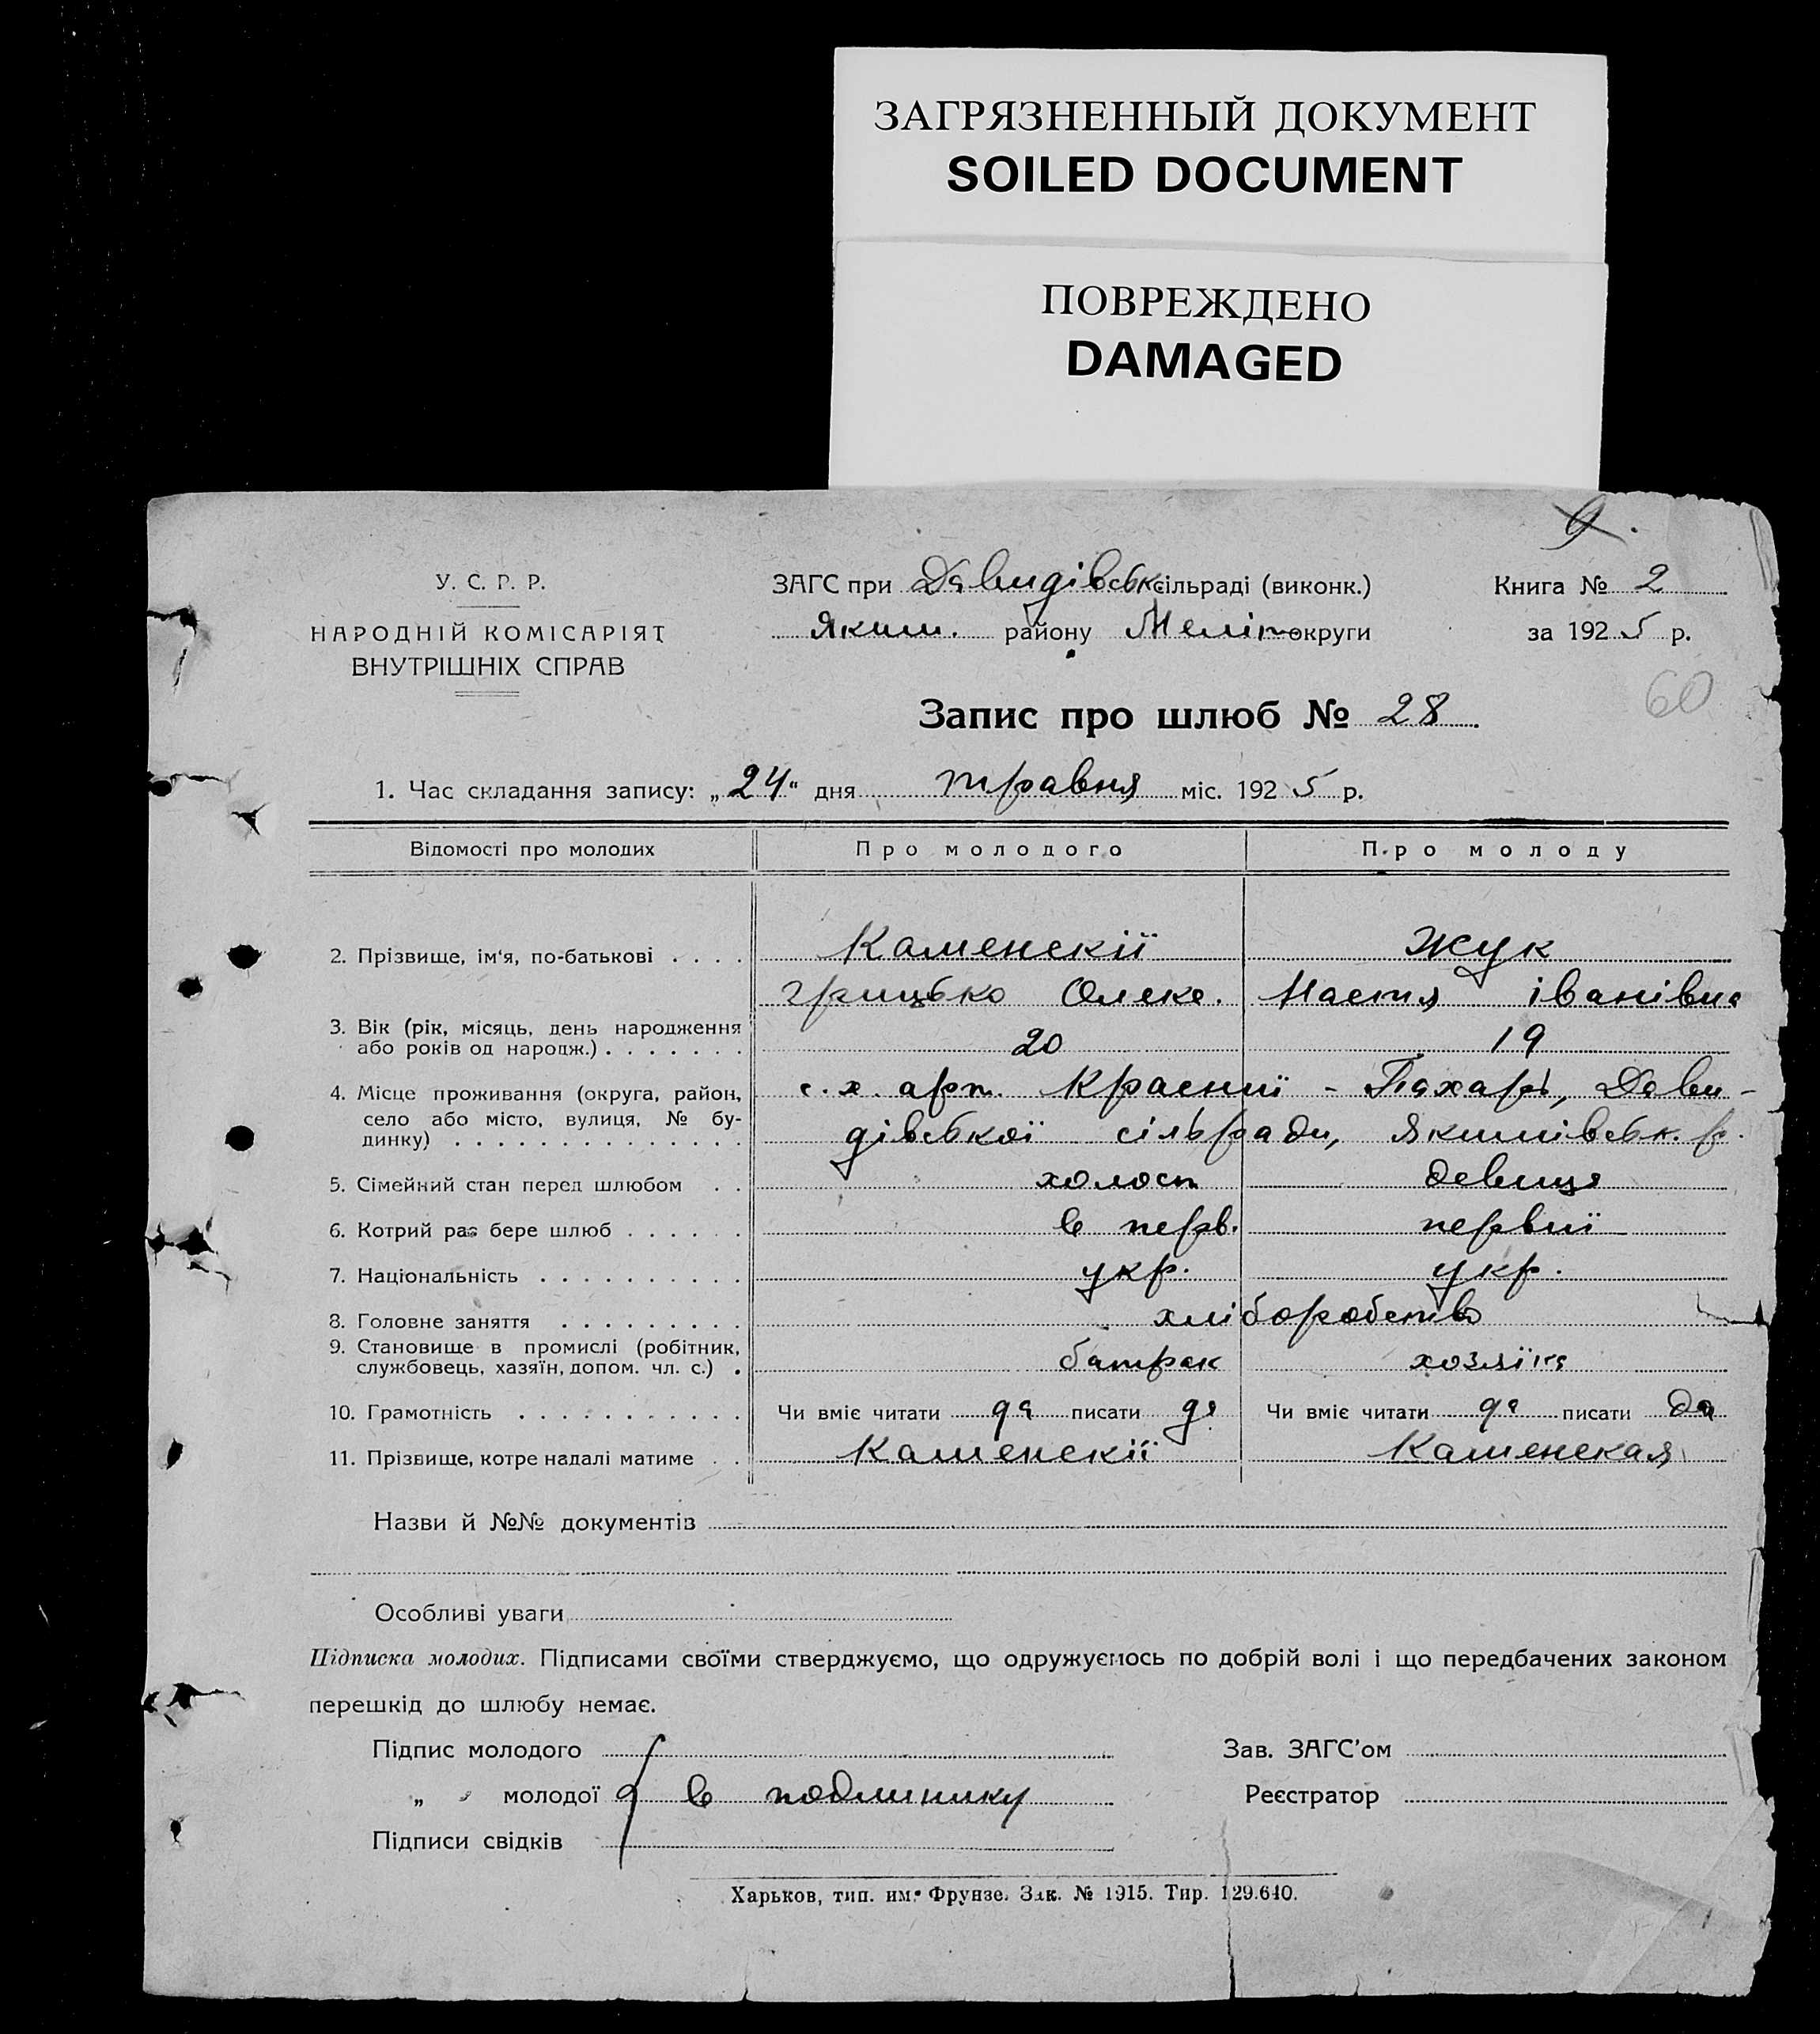 ЗАГРЯЗНЕННЫЙ ДОКУМЕНТ
SOILED DOCUMENT
ПОВРЕЖДЕНО
DAMAGED
9.
У. С. Р. Р.
НАРОДНІЙ КОМІСАРІЯТ
ВНУТРІШНІХ СПРАВ
ЗАГС при Давидівськ сільраді (виконк.)
Яким. району Меліт округи
Книга № 2
за 1925 р.
60
Запис про шлюб № 28.
1. Час складання запису: „24“ дня травня міс. 1925 р.
Відомості про молодих Про молодого Про молоду
2. Прізвище, ім'я, по-батькові . . . . Каменскії Жук
Грицько Олекс. Настя іванівна
3. Вік (рік, місяць, день народження
або років од народж.) . . . . . . . 20 19
4. Місце проживання (округа, район, с.х. арт. Краснії - Пахарь, Дави-
село або місто, вулиця, № бу-
динку) . . . . . . . . . . . . . . дівської сільради, Якимівськ. р.
5. Сімейний стан перед шлюбом . . холост девиця
6. Котрий раз бере шлюб . . . . . . в перв. первиї
7. Національність . . . . . . . . . . укр. укр.
8. Головне заняття . . . . . . . . . хліборобство
9. Становище в промислі (робітник,
службовець, хазяїн, допом. чл. с.) . батрак хозяїка
10. Грамотність . . . . . . . . . . . Чи вміє читати да писати да Чи вміє читати да писати да
11. Прізвище, котре надалі матиме . . Каменскії Каменская
Назви й №№ документів
Особливі уваги
Підписка молодих. Підписами своїми стверджуємо, що одружуємось по добрій волі і що передбачених законом
перешкід до шлюбу немає.
Підпис молодого Зав. ЗАГС'ом
„ „ молодої в подлинику Реєстратор
Підписи свідків
Харьков, тип. им. Фрунзе. Зак. № 1915. Тир. 129.640.